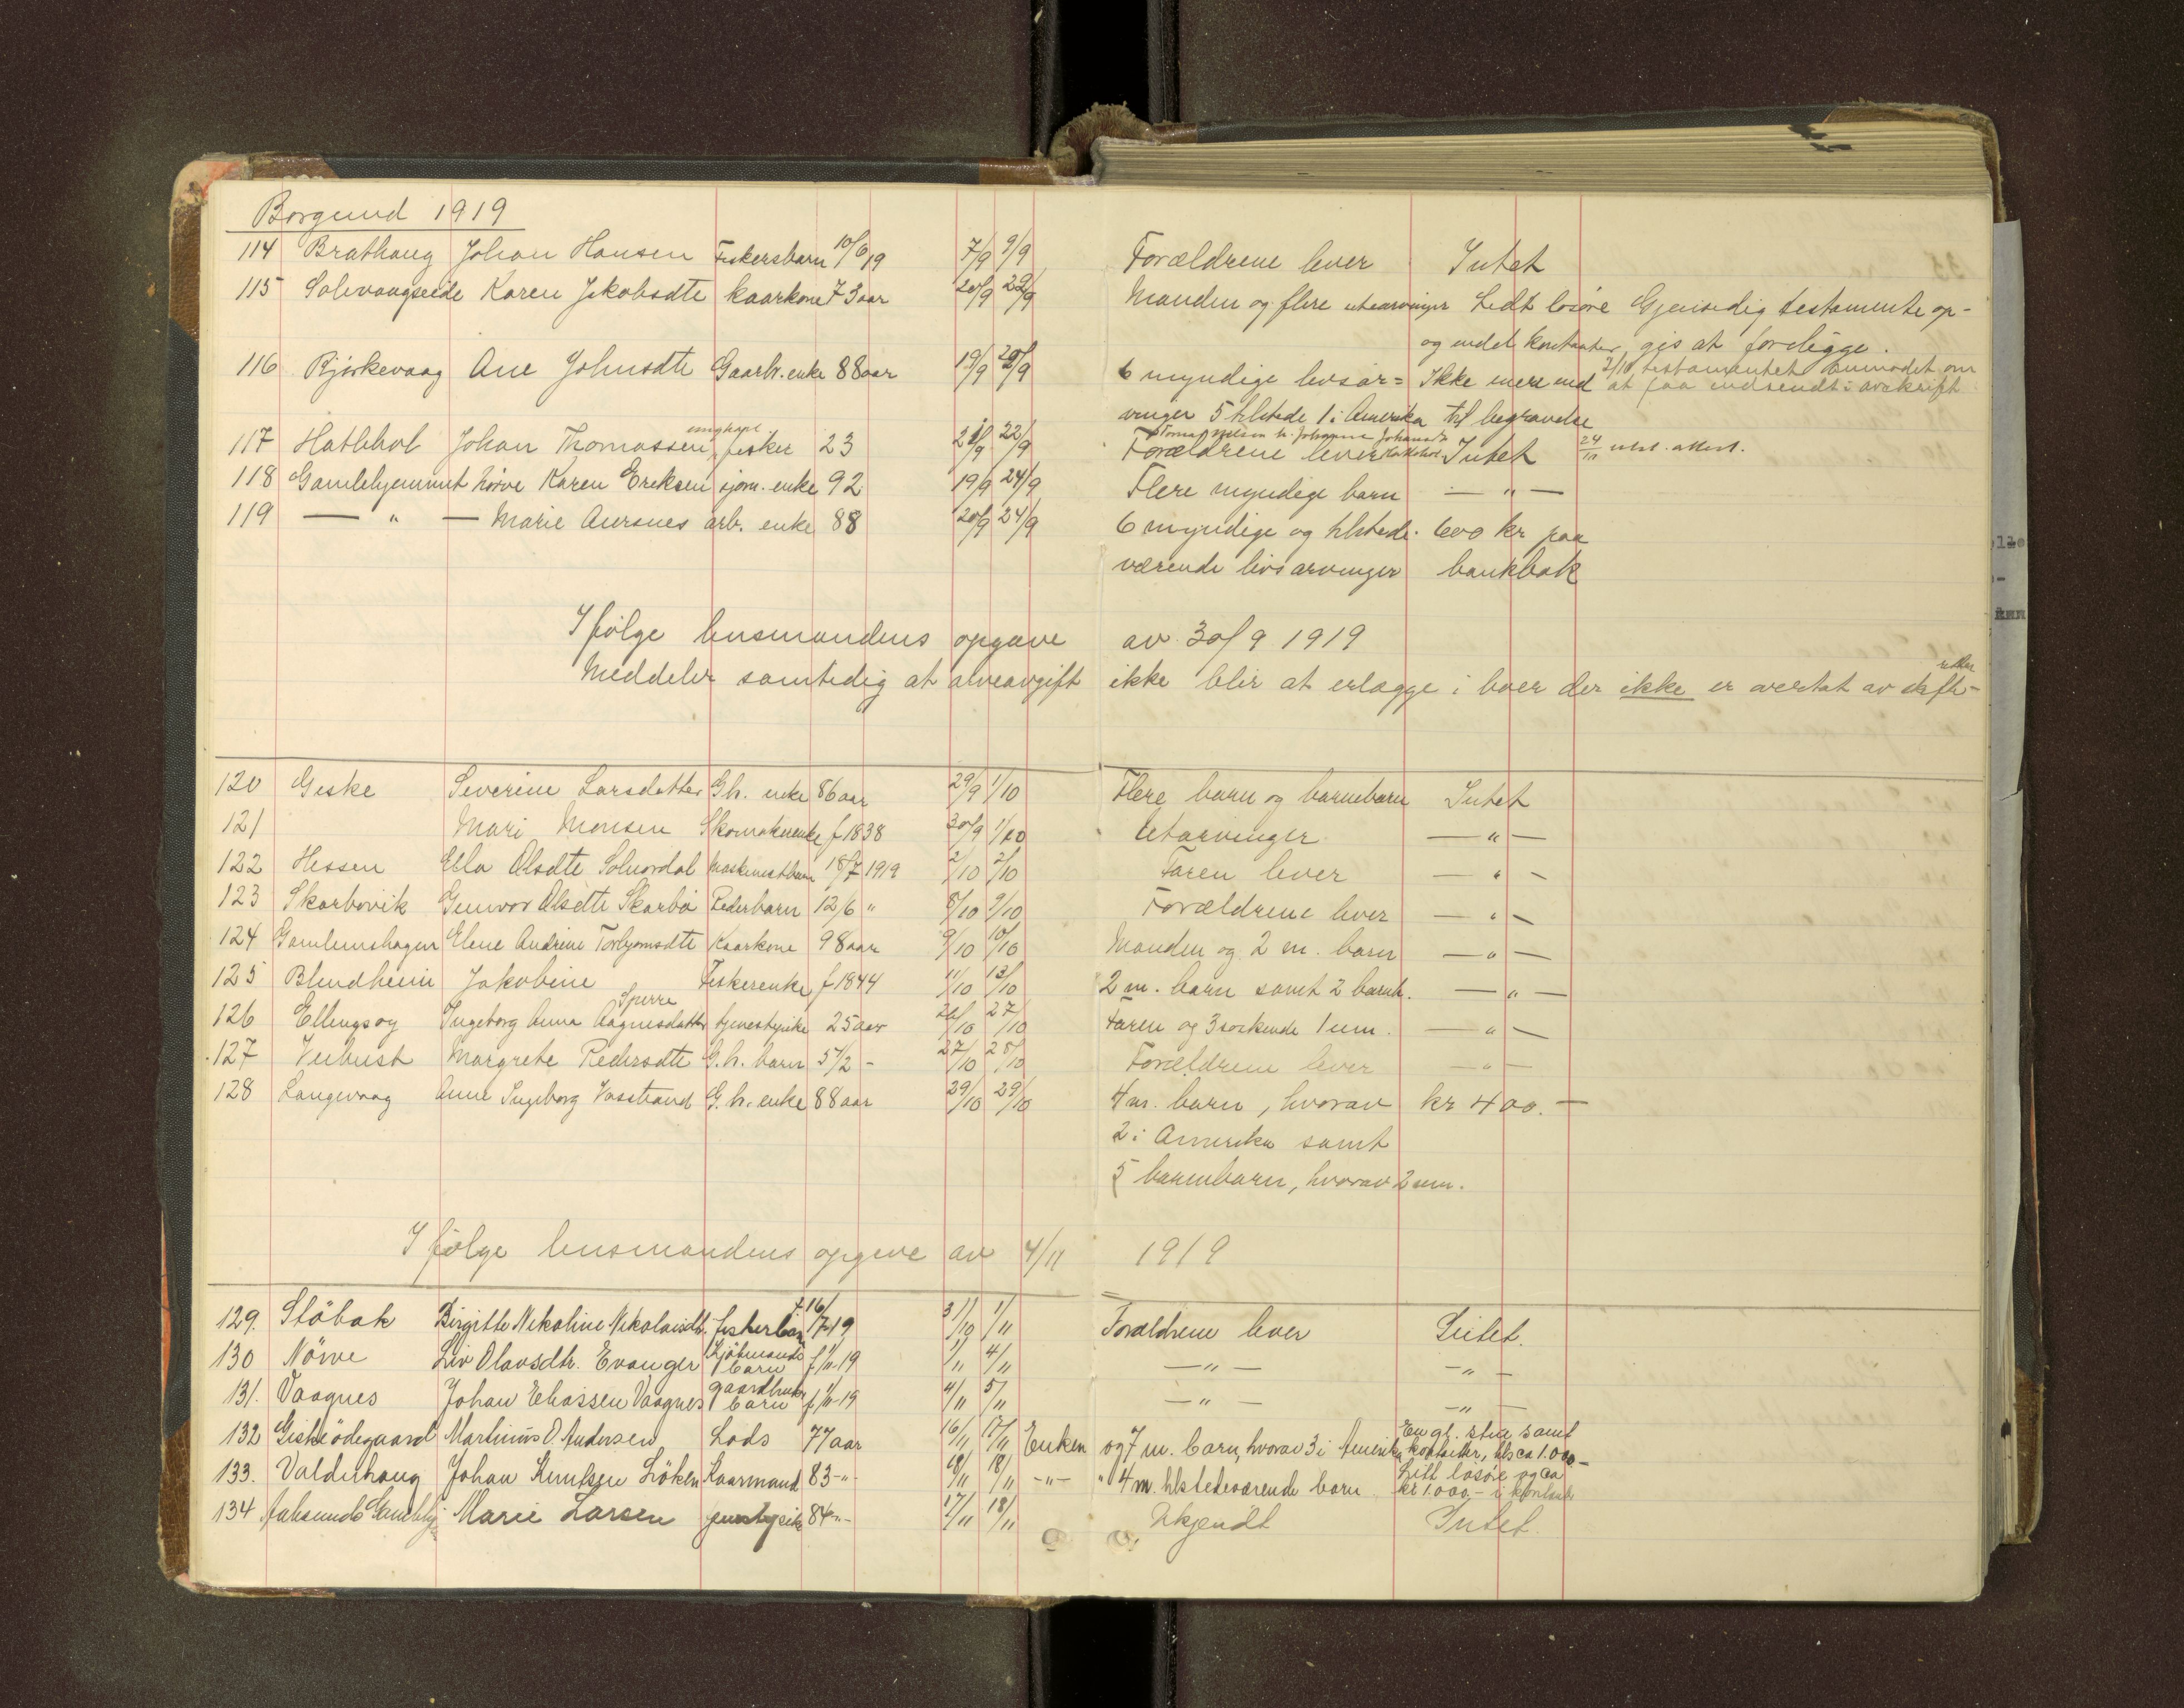 Borgund 1919
114 Brathaug Johan Hansen Fiskersbarn 10/6 19 7/9 9/9 Forældrene lever Intet
115 Solevaagseide Karen Jakobsdtr kaarkone 73 aar 20/9 22/9 Manden og flere utearvinger Lidt løsøre Gjensidig testamente op-
og endel kontanter, gis at foreligge.
2/10 testamentet anmodet om
116 Bjørkevaag Ane Johnsdtr Gaarbr. enke 88 aar 19/9 20/9 6 myndige livsar= Ikke mere end at faa indsendt i avskrift
vinger 5 tilstede 1 i Amerika til begravelse
ungkar
117 Hatlehol Johan Thomassen fisker 23 21/9 22/9 Forældrene lever Intet 24/11
118 Gamlehjemmet Nörve Karen Eriksen sjöm. enke 92 19/9 24/9 Flere myndige barn — " —
119 — " — Marie Aursnes arb. enke 88 20/9 24/9 6 myndige og tilstede- 600 kr paa
værende livsarvinger bankbok
Ifölge lensmandens opgave av 30/9 1919
Meddeler samtidig at arveavgift ikke blir at erlægge i boer der ikke er overtat av skifte-
retten
120 Giske Severine Larsdatter G.br. enke 86 aar 29/9 1/10 Flere barn og barnebarn Intet
121 Mari Monsen Skomakerenke f 1838 30/9 1/10 Utarvinger — " —
122 Hessen Ella Olsdtr Solnørdal Maskinistbarn 18/7 1919 2/10 2/10 Faren lever — " —
123 Skarbövik Gunvor Olsdtr Skarbö Rederbarn 12/6 " 8/10 9/10 Forældrene lever — " —
124 Gamlemshagen Elene Andrine Torbjørnsdtr Kaarkone 98 aar 9/10 10/10 Manden og 2 m. barn — " —
125 Blindheim Jakobine Fiskerenke f 1844 11/10 13/10 2 m. barn samt 2 barneb. — " —
Sperre
126 Ellingsøy Ingeborg Anna Aagnesdatter tjenestepike 25 aar 26/10 27/10 Faren og 3 søskende 1 um. — " —
127 Vebust Margrete Pedersdtr G.br. barn 5 1/2 - 27/10 28/10 Forældrene lever — " —
128 Langevaag Anne Ingeborg Vasstrand G.br. enke 88 aar 29/10 29/10 4 m. barn, hvorav kr 400.-
2 i Amerika samt
5 barnebarn, hvorav 2 um.
Ifølge lensmandens opgave av 4/11 1919
129. Stöbak Birgitte Nikoline Nikolaisdtr. fiskerbarn f. 16/7-19 31/10 1/11 Forældrene lever Intet.
130 Nörve Liv Olavsdtr. Evanger Kjøbmands barn f 1/11-19 1/11 4/11 — " — — " —
131. Vaagnes Johan Eliassen Vaagnes gaardbruker barn f 1/11-19 4/11 5/11 — " — — " —
132 Giskeödegaard Martinus O. Andersen Lods 77 aar 16/11 17/11 Enken og 7 m. barn, hvorav 3 i Amerika En gl. stue samt kontanter, tils ca 1.000-
133. Valderhaug Johan Knutsen Löken Kaarmand 83 - " - 18/11 18/11 - " - " 4 m. tilstedeværende barn Litt løsøre og ca kr 1.000.- i kontant
134 Aalesunds Gamlehj. Marie Larsen 84 - " - 17/11 18/11 Ukjendt Intet.